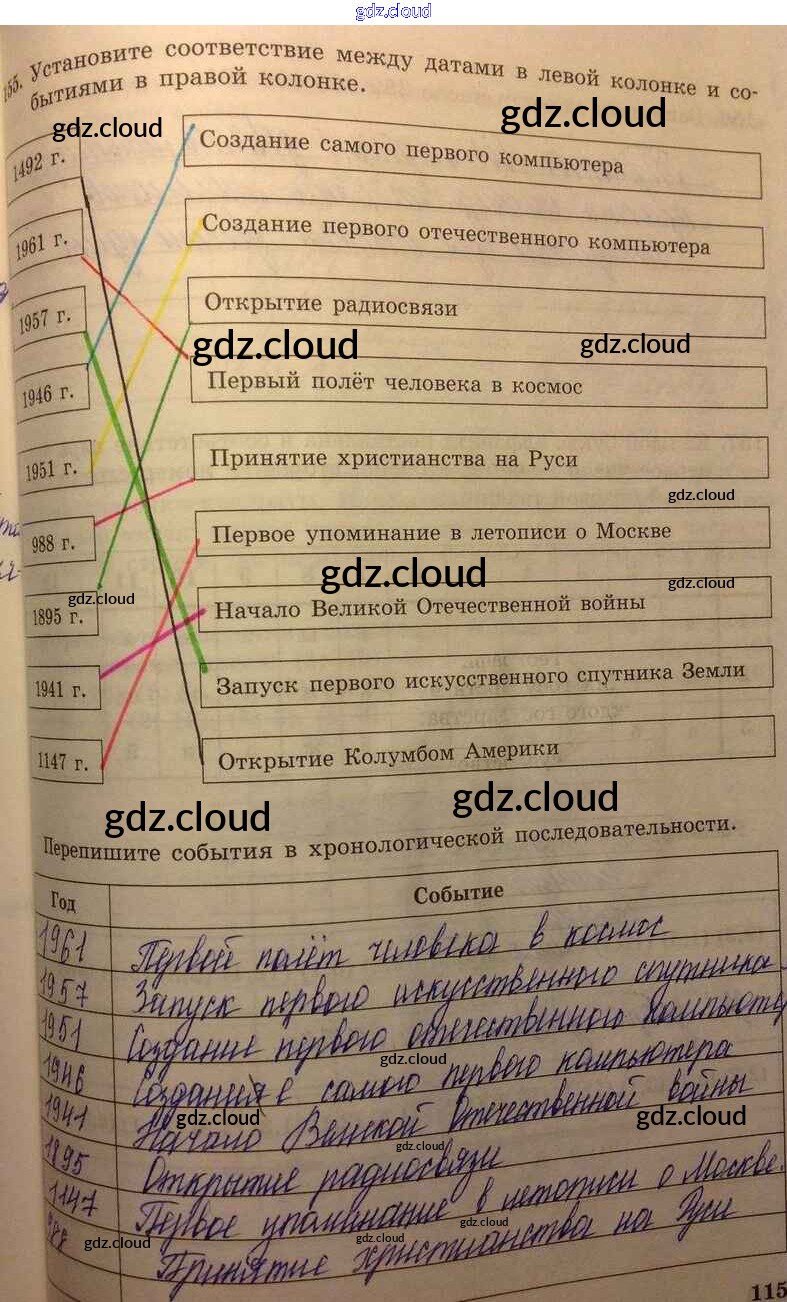 gdz.cloud
155. Установите соответствие между датами в левой колонке и со-
бытиями в правой колонке.
gdz.cloud
gdz.cloud
1492 г.
Создание самого первого компьютера
1961 г.
Создание первого отечественного компьютера
1957 г.
Открытие радиосвязи
gdz.cloud
gdz.cloud
1946 г.
Первый полёт человека в космос
1951 г.
Принятие христианства на Руси
gdz.cloud
988 г.
Первое упоминание в летописи о Москве
gdz.cloud
gdz.cloud
gdz.cloud
1895 г.
Начало Великой Отечественной войны
1941 г.
Запуск первого искусственного спутника Земли
1147 г.
Открытие Колумбом Америки
gdz.cloud
gdz.cloud
Перепишите события в хронологической последовательности.
Год Событие
1961 Первой полёт человека в космос
1957 Запуск первого искусственного спутника
1951 Создание первого отечественного компьютер
gdz.cloud
1946 Создание самого первого компьютера
gdz.cloud
gdz.cloud
1941 Начало Великой Отечественной войны
gdz.cloud
1895 Открытие радиосвязи
1147 Первое упоминание в летописи о Москве.
gdz.cloud
gdz.cloud
gdz.cloud
988 Принятие христианства на Руси
115